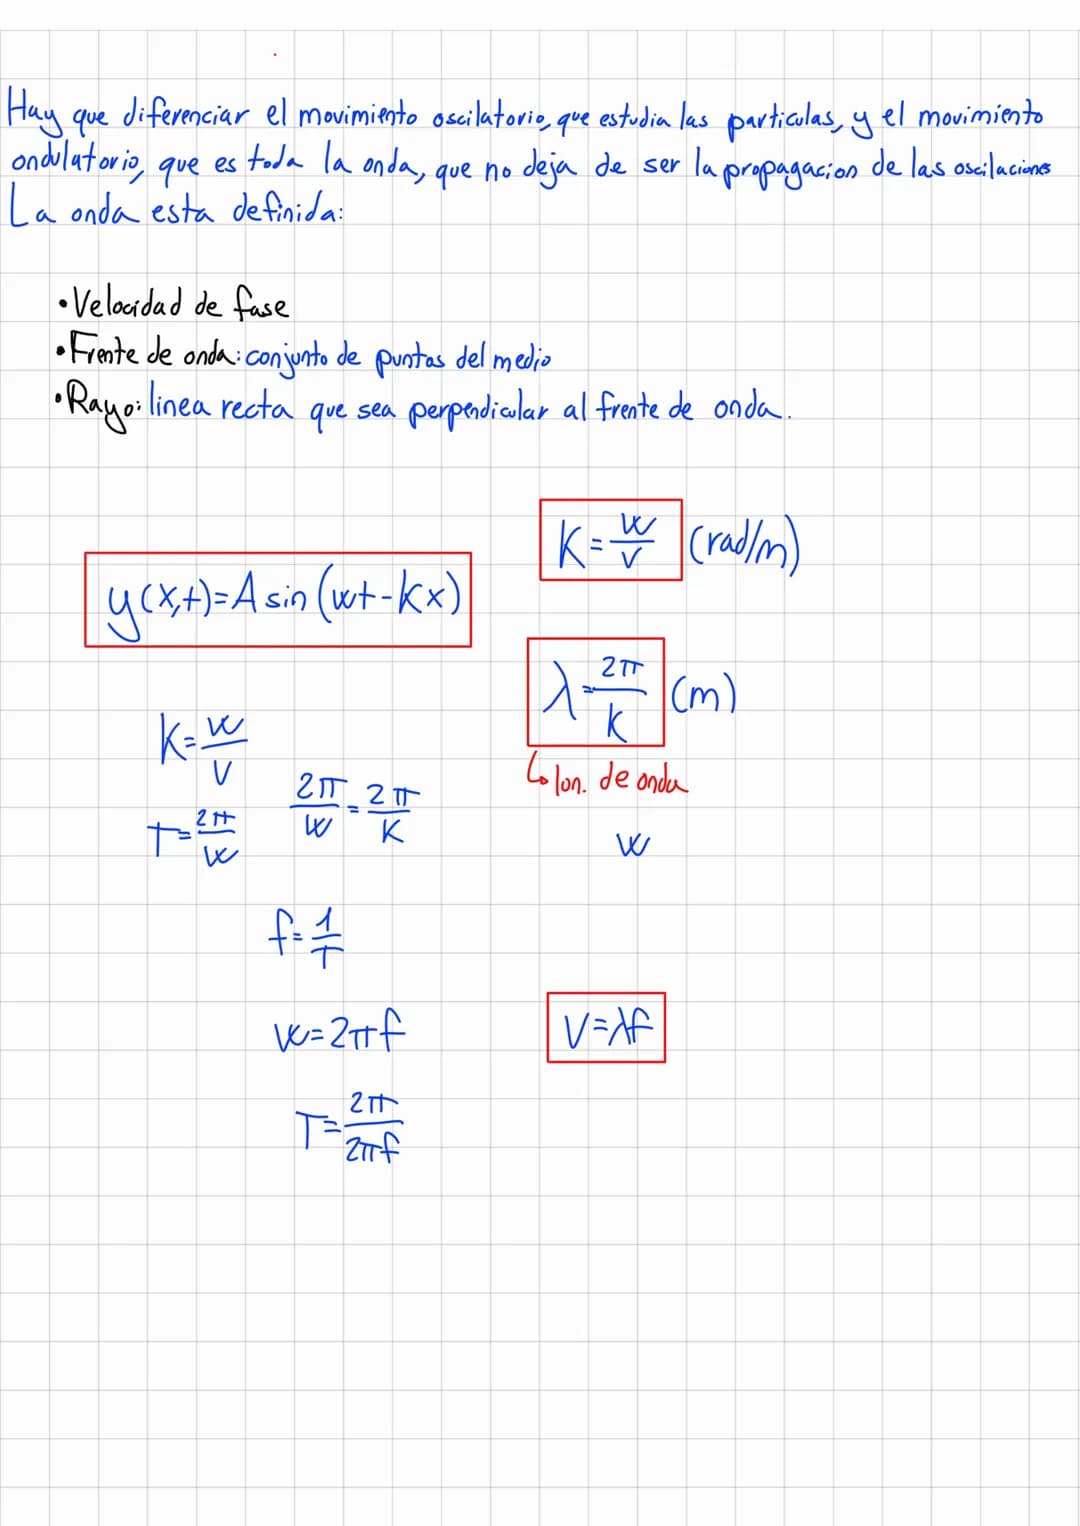 Hay que diferenciar el movimiento oscilatorio, que estudia las particulas, y el movimiento
ondulatorio, que es toda la onda, que no deja de ser la propagacion de las oscilaciones
La onda esta definida:
•Velocidad de fase
•Frente de onda: conjunto de puntos del medio
•Rayo: linea recta que sea perpendicular al frente de onda.
K=w/v (rad/m)
y(x,t)=A sin (wt-kx)
λ=2π/k (m)
↳ lon. de onda
K=w/v
T=2π/w
2π/w=2π/K
w
f=1/T
w=2πf
V=λf
T=2π/2πf